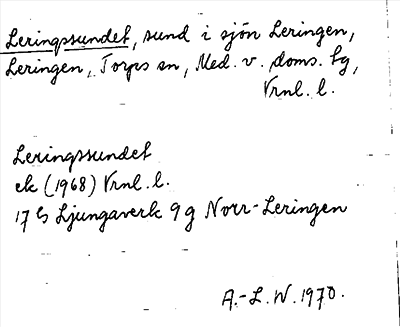 Leringssundet, sund i sjön Leringen,
Leringen, Torps sn, Med. v. doms. tg,
Vrnl. l.
Leringssundet
ek (1968) Vrnl. l.
17 G Ljungaverk 9 g Norr-Leringen
A.-L. W. 1970.